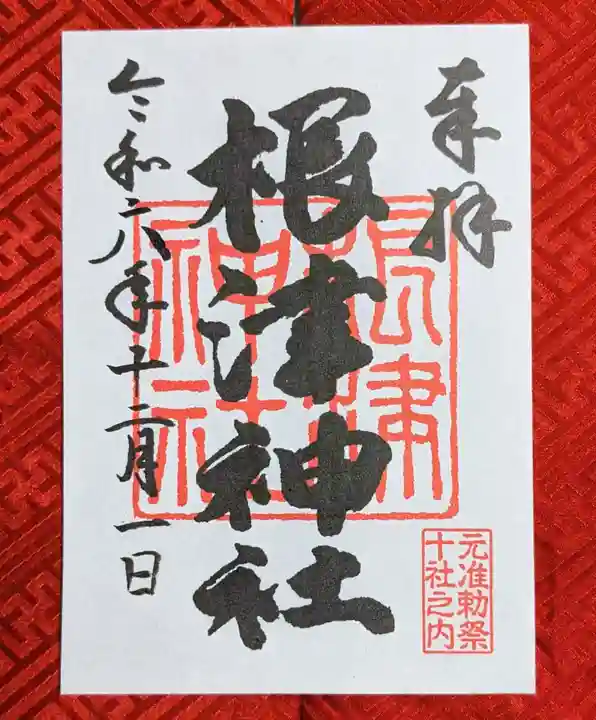 奉拝
根津神社
根津神社
元准勅祭
十社之内
令和六年十二月一日